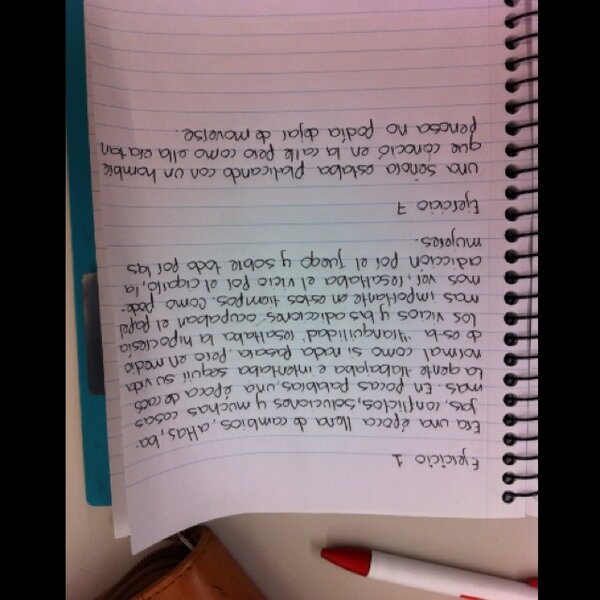 Ejercicio 1
Era una época llena de cambios, altas, ba-
jas, conflictos, soluciones y muchas cosas
mas. En pocas palabras, una época de caos.
La gente trabajaba e intentaba seguir su vida
normal como si nada pasara, pero en medio
de es-ta "tranquilidad" resaltaba la hipocresia
los vicios y las adicciones ocupaban el papel
mas importante en estos tiempos. Como pode-
mos ver, resaltaba el vicio por el cigarillo, la
adicción por el juego y sobre todo por las
mujeres.
Ejercicio 7
una señora estaba platicando con un hombre
que conoció en la calle pero como ella era tan
penosa no podía dejar de moverse.